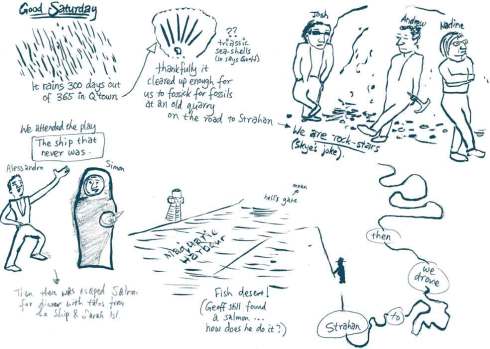 Good Saturday
It rains 300 days out
of 365 in Q'town
??
triassic
sea-shells
(so says Geoff)
thankfully it
cleared up enough for
us to fossick for fossils
at an old quarry
on the road to Strahan
Josh
Andrew
Nadine
We are rock-stars
(Skye's joke).
We attended the play
The ship that
never was..
Alessandro
Simon
for dinner with tales from
Macquarie
Harbour
hell's gate
Fish desert!
(Geoff still found
a salmon ...
how does he do it?)
then
we
drove
to
Strahan